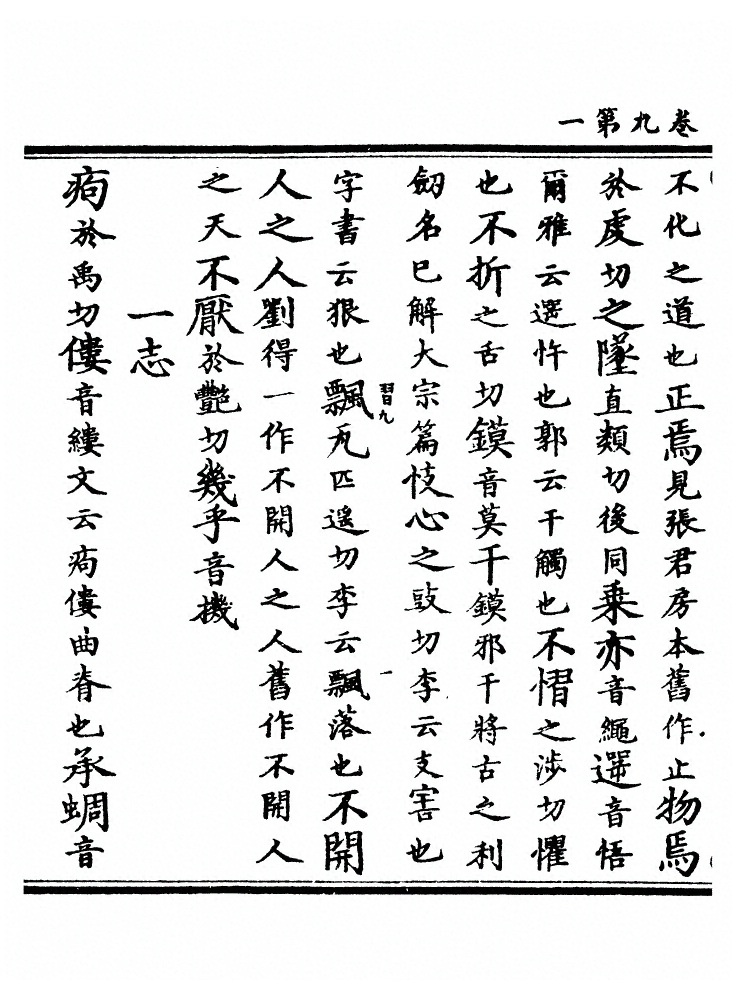 卷九第一
不化之道也正焉見張君房本舊作止物焉
於虔切之墜直類切後同乗亦音繩遻音悟
爾雅云遻忤也郭云干觸也不慴之涉切懼
也不折之舌切鏌音莫干鏌邪干將古之利
劒名巳解大宗篇忮心之豉切李云支害也
習九 一
字書云狠也飄瓦匹遥切李云飄落也不開
人之人劉得一作不開人之人舊作不開人
之天不厭於豔切幾乎音機
一志
痀於禹切僂音縷文云痀僂曲脊也承蜩音